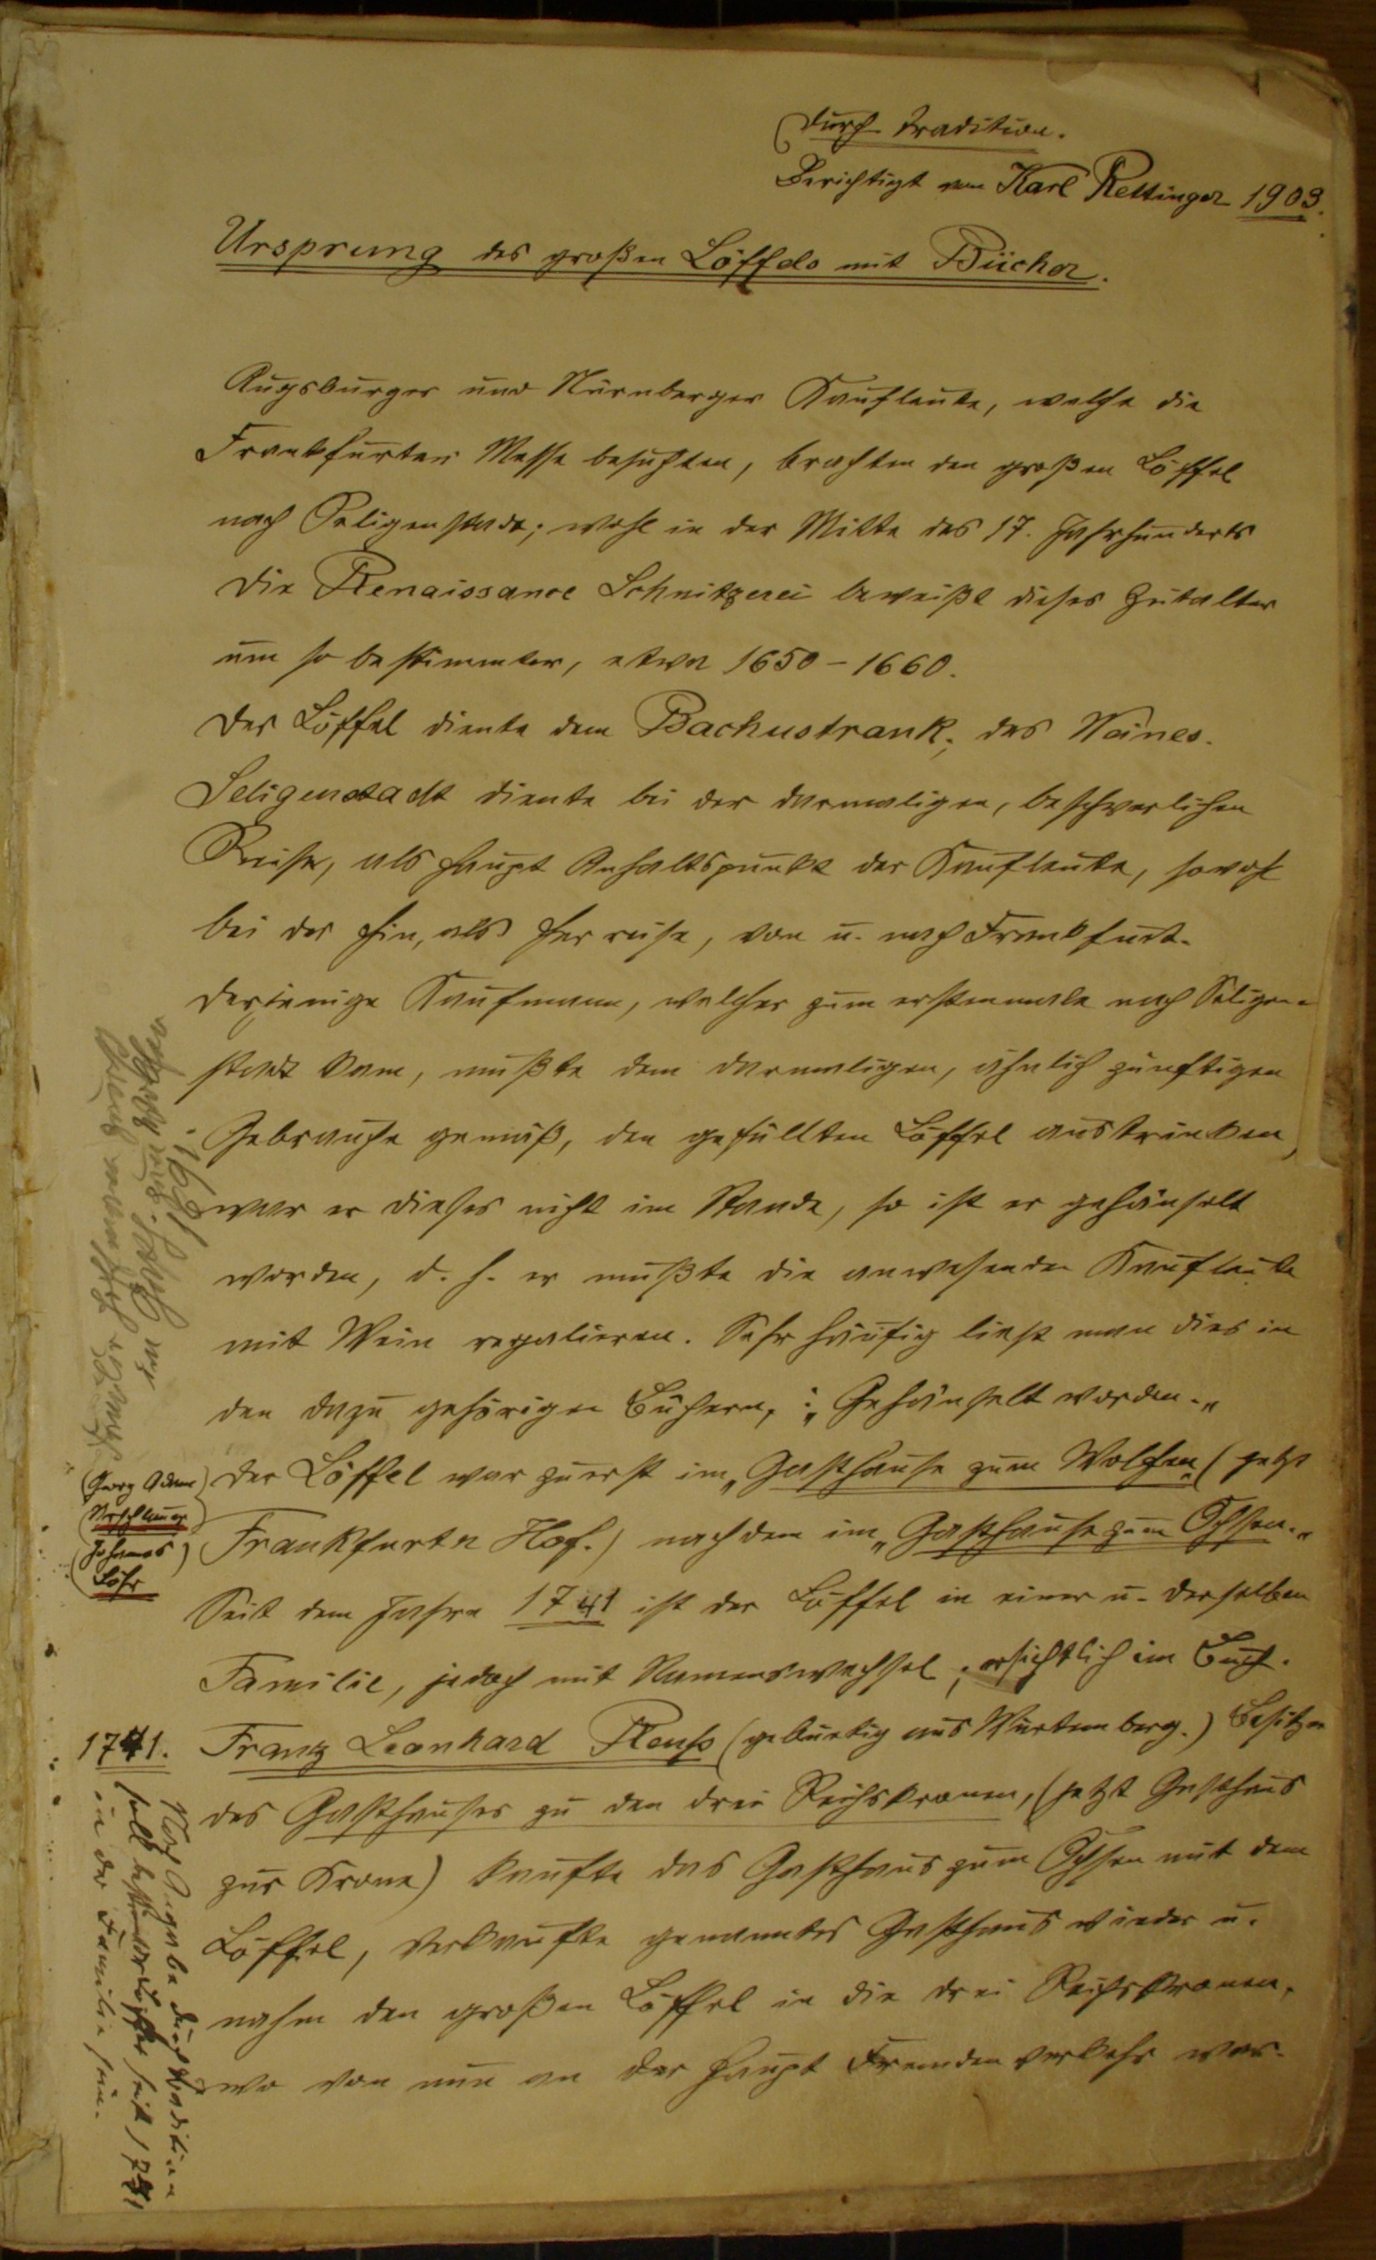 durch Tradition.
Berichtigt von Karl Rettinger 1903.
Ursprung des großen Löffels mit Bücher.
Augsburger und Nürnberger Kaufleute, welche die
Frankfurter Messe besuchten, brachten den großen Löffel
nach Seligenstadt; wohl in der Mitte des 17. Jahrhunderts
die Renaissance Schnitzerei beweißt dieses Zeitalter
um so bestimmter, etwa 1650-1660.
Der Löffel diente dem Bachustrank, des Weines.
Seligenstadt diente bei der damaligen, beschwerlichen
Reise, als Haupt Anhaltspunkt der Kaufleute, sowohl
bei der Hin, als Her reise, von u. nach Frankfurt.
Derjenige Kaufmann, welcher zum erstenmale nach Seligen=
stadt kam, mußte dem damaligen, ähnlich zünftigen
Gebrauche gemäß, den gefüllten Löffel austrinken,
war er dieses nicht im Stande, so ist er gehänselt
worden, d. h. er mußte die anwesenden Kaufleute
mit Wein regalieren. Sehr häufig liest man dies in
den dazu gehörigen Büchern, : „Gehänselt worden."
Der Löffel war zuerst im „Gasthause zum Wolfen" (jetzt
Frankfurter Hof.) nachdem im „Gasthause zum Ochsen."
Seit dem Jahre 1741 ist der Löffel in einer u. derselben
Familie, jedoch mit Namenswechsel, ersichtlich im Buch.
Franz Leonhard Reuß (gebürtig aus Würtemberg.) Besitzer
des Gasthauses zu den drei Reichskronen, (jetzt Gasthaus
zur Krone) kaufte das Gasthaus zum Ochsen mit dem
Löffel, verkaufte genanntes Gasthaus wieder u.
nahm den großen Löffel in die drei Reichskronen,
wo von nun an der Haupt Fremdenverkehr war.
1691.
(Georg Adam
(Johannes)
Löhr
1741.
Nach Angabe durch Tradition
soll Löffel seit 1741
in der Familie sein.